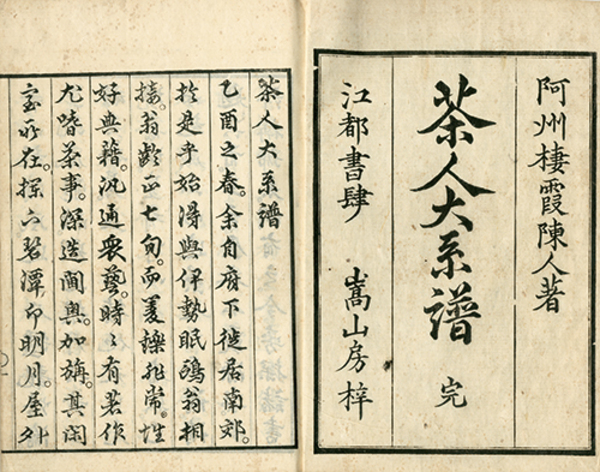 阿州棲霞陳人著
茶人大系譜 完
江都書肆 嵩山房梓
茶人大系譜
乙酉之春。余自府下徙居南郊。
於是乎始得與伊勢眠鷗翁相
接。翁齡正七旬。而矍鑠非常。性
好典籍。汎通衆藝。時〻有著作
尤嗜茶事。深造閫奧。加旃。其閑
室所在。探六碧潭印明月。屋外